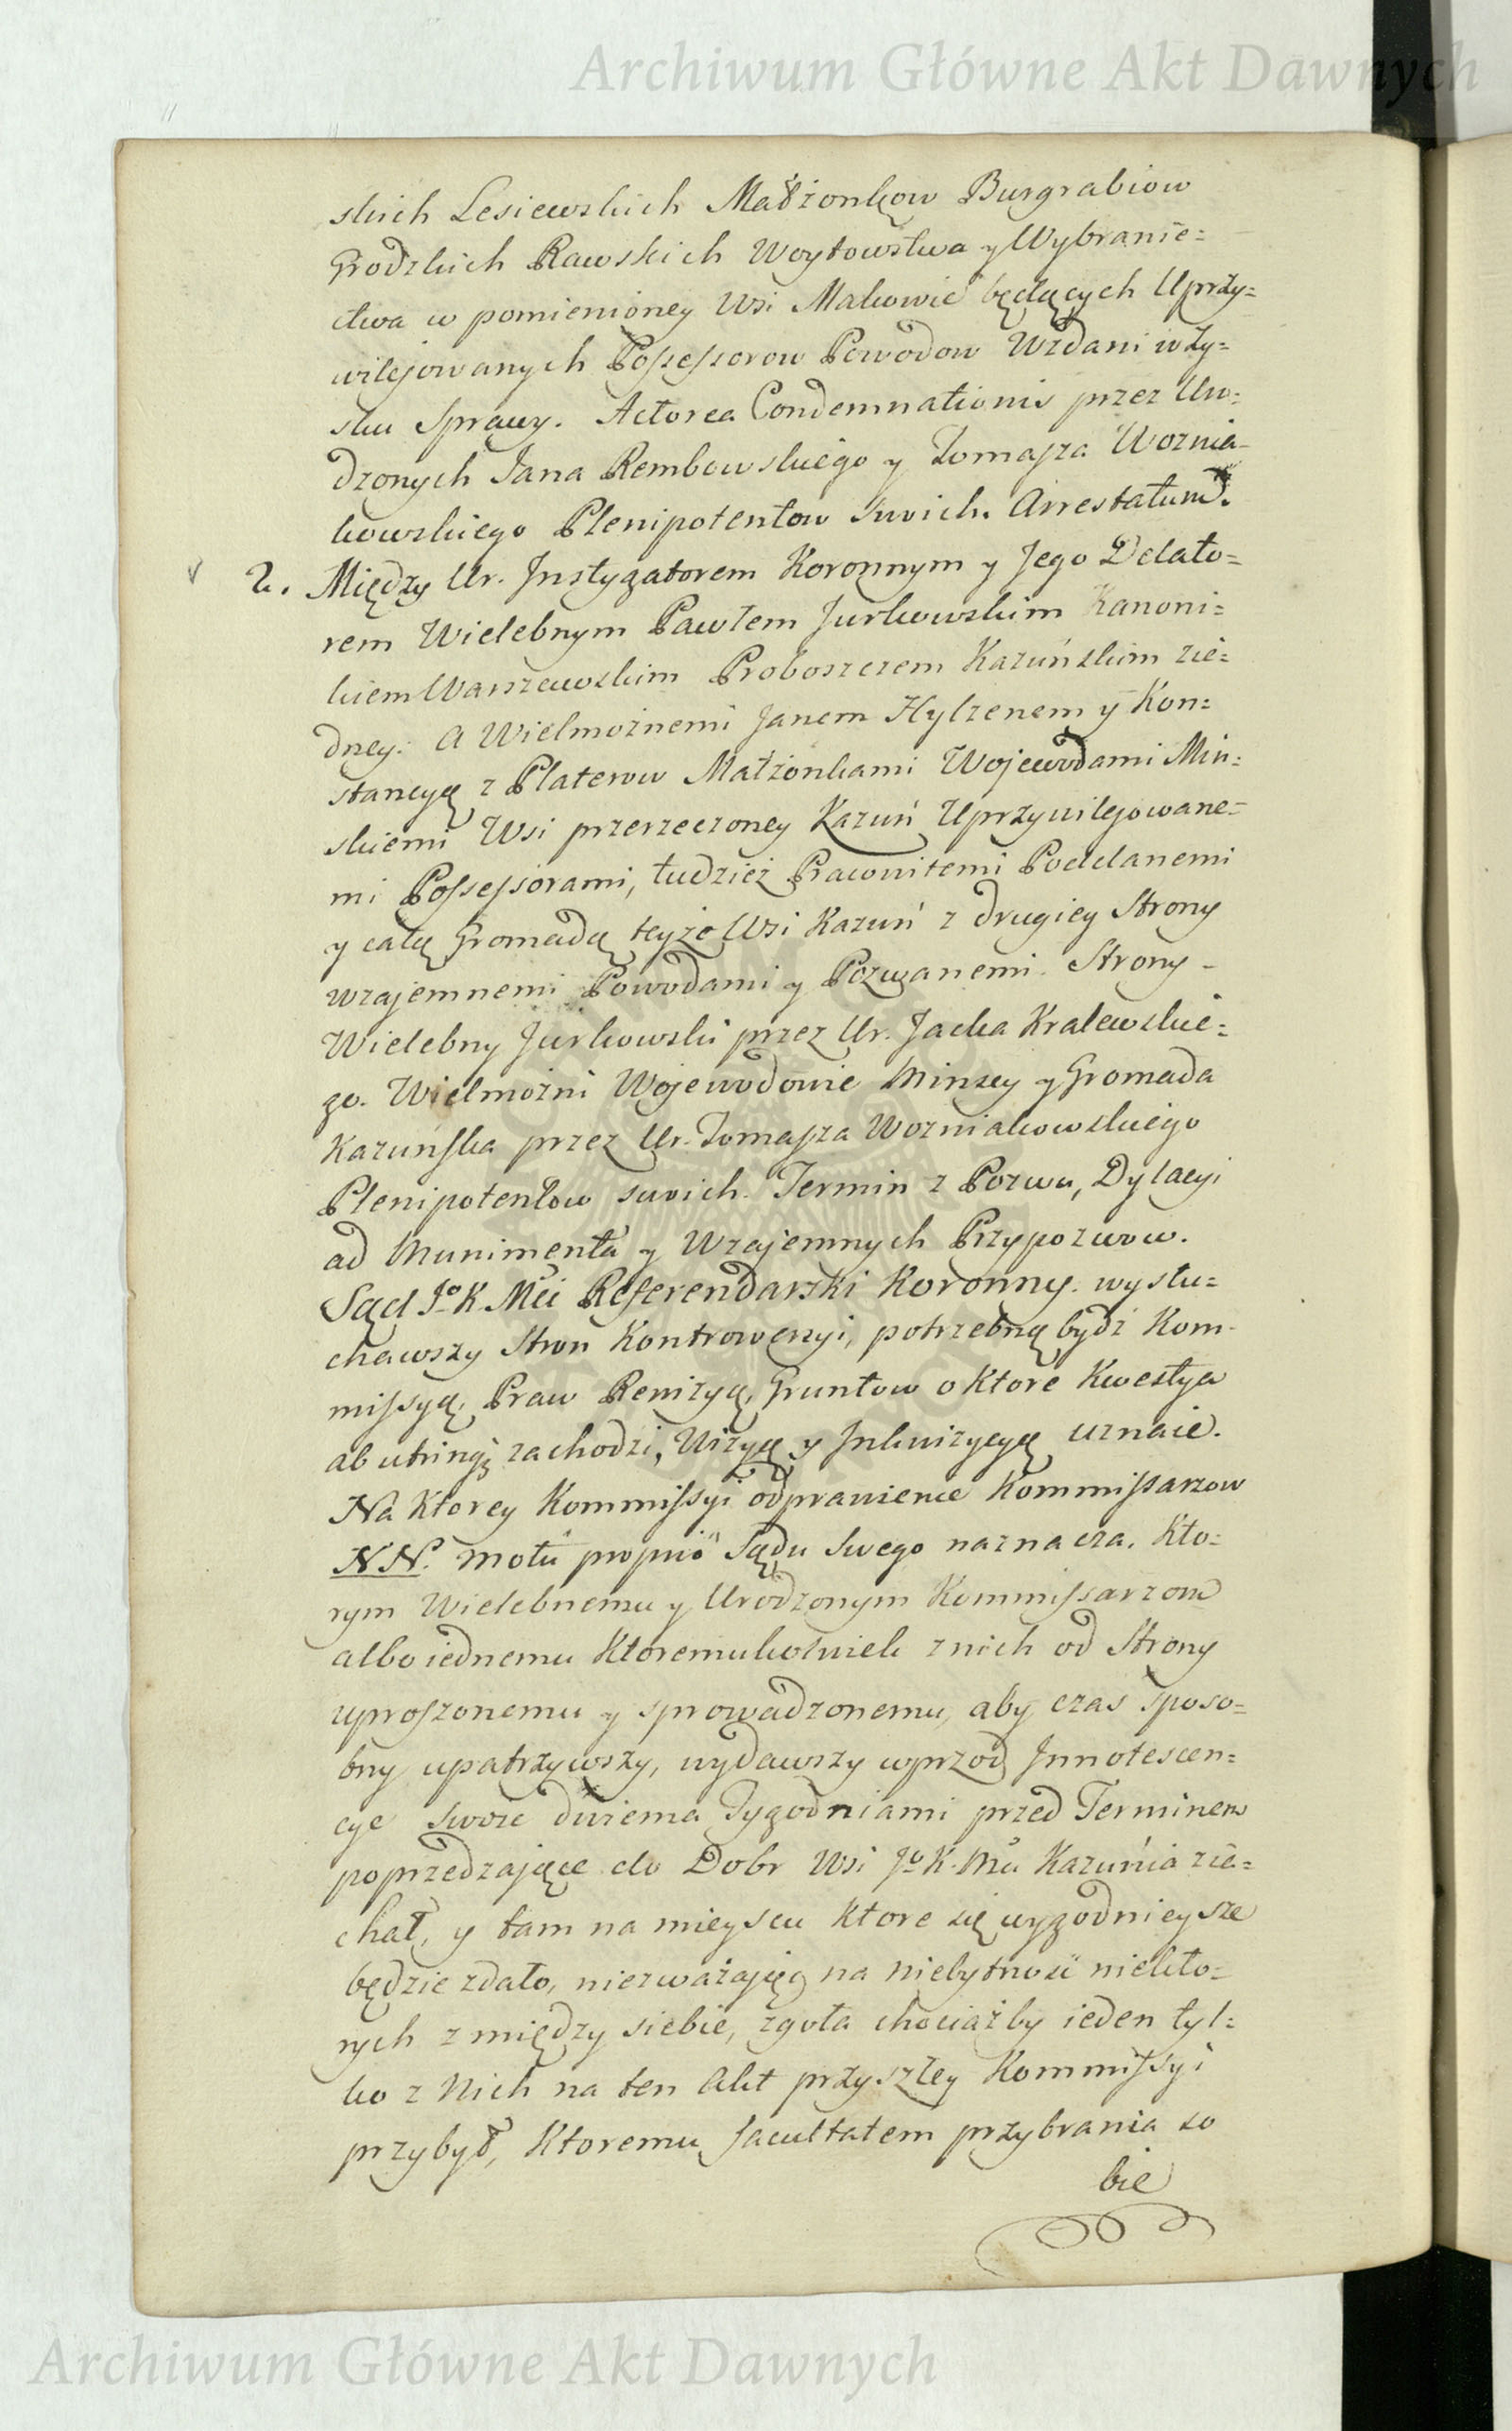 Archiwum Główne Akt Dawnych
skich Lesiewskich Małżonkow Burgrabiow
Grodzkich Rawskich Woytowstwa y Wybranie=
ctwa w pomienioney Wsi Makowie będących Uprzy=
wilejowanych Possessorow Powodow Wzdani w Zy=
sku Sprawy. Actorea Condemnationis przez Uro=
dzonych Jana Rembowskiego y Tomasza Woznia-
kowskiego Plenipotentow swoich. Arrestatum.
2. Między Ur. Instygatorem Koronnym y Jego Delato=
rem Wielebnym Pawłem Jurkowskim Kanoni=
kiem Warszawskim Proboszczem Kazuńskim zie=
dney. A Wielmożnemi Janem Hylzenem y Kon=
stancyą z Platerow Małżonkami Wojewodami Min=
skiemi Wsi przerzeczoney Kazuń Uprzywilejowane=
mi Possessorami, tudzież Pracowitemi Poddanemi
y całą Gromadą teyże Wsi Kazuń z drugiey Strony
wzajemnemi Powodami y Pozwanemi. Strony -
Wielebny Jurkowski przez Ur. Jacka Kralewskie=
go. Wielmożni Wojewodowie Minscy y Gromada
Kazuńska przez Ur. Tomasza Wozniakowskiego
Plenipotentow swoich. Termin z Pozwu, Dylacyi
ad Munimenta y Wzajemnych Przypozwow.
Sąd Jº K Mci Referendarski Koronny. wysłu=
chawszy Stron Kontrowersyi, potrzebną bydź Kom-
missyą, Praw Rewizyą, Gruntow o Ktore Kwestya
ab utrinq; zachodzi, Wizyą y Inkwizycyą uznaie.
Na Ktorey Kommissyi odprawienie Kommissarzow
NN. motu proprio Sądu Swego naznacza. Kto=
rym Wielebnemu y Urodzonym Kommissarzom
albo iednemu Ktoremukolwiek z nich od Strony
uproszonemu y sprowadzonemu, aby czas sposo=
bny upatrzywszy, wydawszy wprzod Innotescen=
cye swoie dwiema Tygodniami przed Terminem
poprzedzające do Dobr Wsi Jº K. Mci Kazunia zie=
chał, y tam na mieyscu Ktore się wygodnieysze
będzie zdało, niezważając na niebytność niekto=
rych z między siebie, zgoła chociażby ieden tyl=
ko z Nich na ten Akt przyszłey Kommissyi
przybył, Ktoremu facultatem przybrania so
bie
Archiwum Główne Akt Dawnych